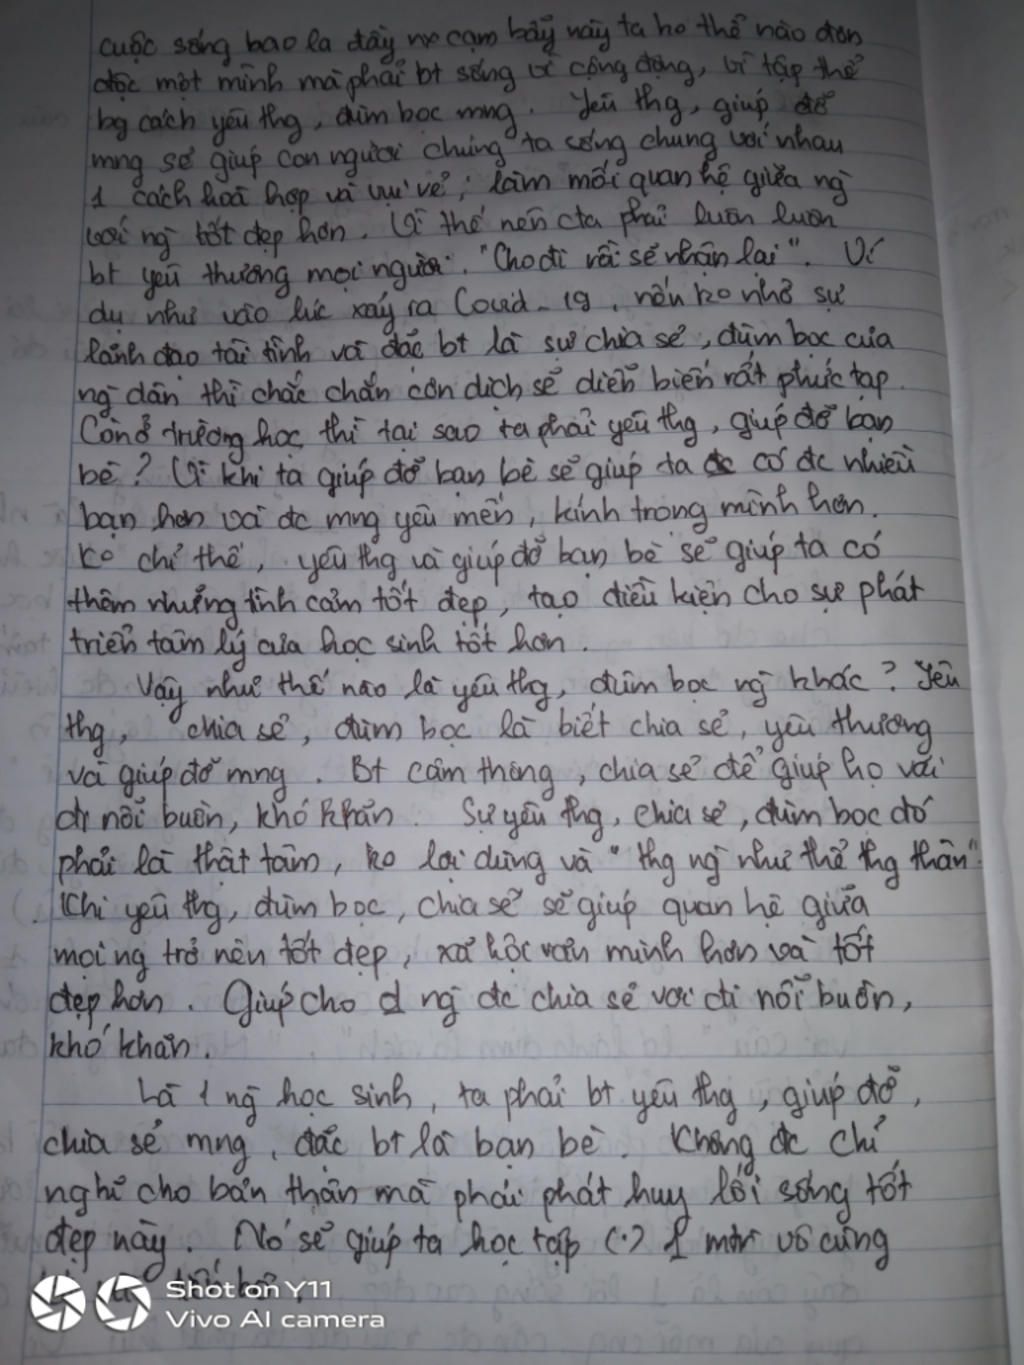 cuộc sống bao la đầy cạm bẫy này ta ko thể nào đơn
độc một mình mà phải bt sống vì cộng đồng, vì tập thể
bg cách yêu thg, đùm bọc mng. Yêu thg, giúp đỡ
mng sẽ giúp con người chúng ta sống chung với nhau
1 cách hoà hợp và vui vẻ, làm mối quan hệ giữa ng`
với ng` tốt đẹp hơn. Vì thế nên cta phải luôn luôn
bt yêu thương mọi người. "Cho đi rồi sẽ nhận lại". Ví
dụ như vào lúc xảy ra Covid-19, nếu ko nhờ sự
lãnh đạo tài tình và đặc bt là sự chia sẻ, đùm bọc của
ng` dân thì chắc chắn cơn dịch sẽ diễn biến rất phức tạp.
Còn ở trường học thì tại sao ta phải yêu thg, giúp đỡ bạn
bè? Vì khi ta giúp đỡ bạn bè sẽ giúp ta có đc nhiều
bạn hơn và đc mng yêu mến, kính trọng mình hơn.
Ko chỉ thế, yêu thg và giúp đỡ bạn bè sẽ giúp ta có
thêm những tình cảm tốt đẹp, tạo điều kiện cho sự phát
triển tâm lý của học sinh tốt hơn.
Vậy như thế nào là yêu thg, đùm bọc ng` khác? Yêu
thg, chia sẻ, đùm bọc là biết chia sẻ, yêu thương
và giúp đỡ mng. Bt cảm thông, chia sẻ để giúp họ vơi
đi nỗi buồn, khó khăn. Sự yêu thg, chia sẻ, đùm bọc đó
phải là thật tâm, ko lợi dụng và "thg ng` như thể thg thân".
Khi yêu thg, đùm bọc, chia sẻ sẽ giúp quan hệ giữa
mọi ng trở nên tốt đẹp, xã hội văn minh hơn và tốt
đẹp hơn. Giúp cho ng` đc chia sẻ vơi đi nỗi buồn,
khó khăn.
Là 1 ng` học sinh, ta phải bt yêu thg, giúp đỡ,
chia sẻ mng, đặc bt là bạn bè. Không đc chỉ
nghĩ cho bản thân mà phải phát huy lối sống tốt
đẹp này. Nó sẽ giúp ta học tập (.) 1 mtr vô cùng
Shot on Y11
Vivo AI camera